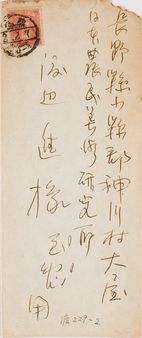 長野縣小縣郡神川村大屋
日本農民美術研究所
渡辺進様
用
渡229-2